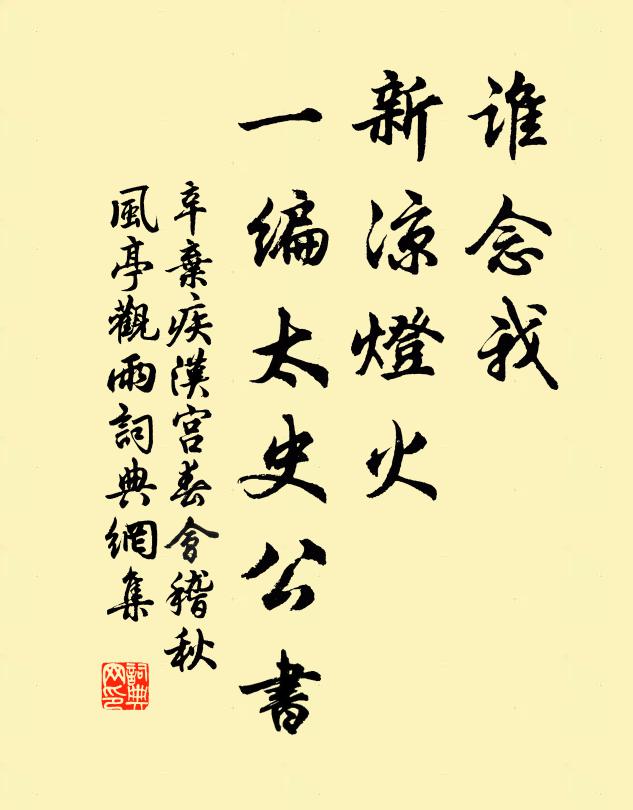 誰念我
新涼燈火
一編太史公書
辛棄疾漢宮春會稽秋
風亭觀雨詞典網集
詞典網印